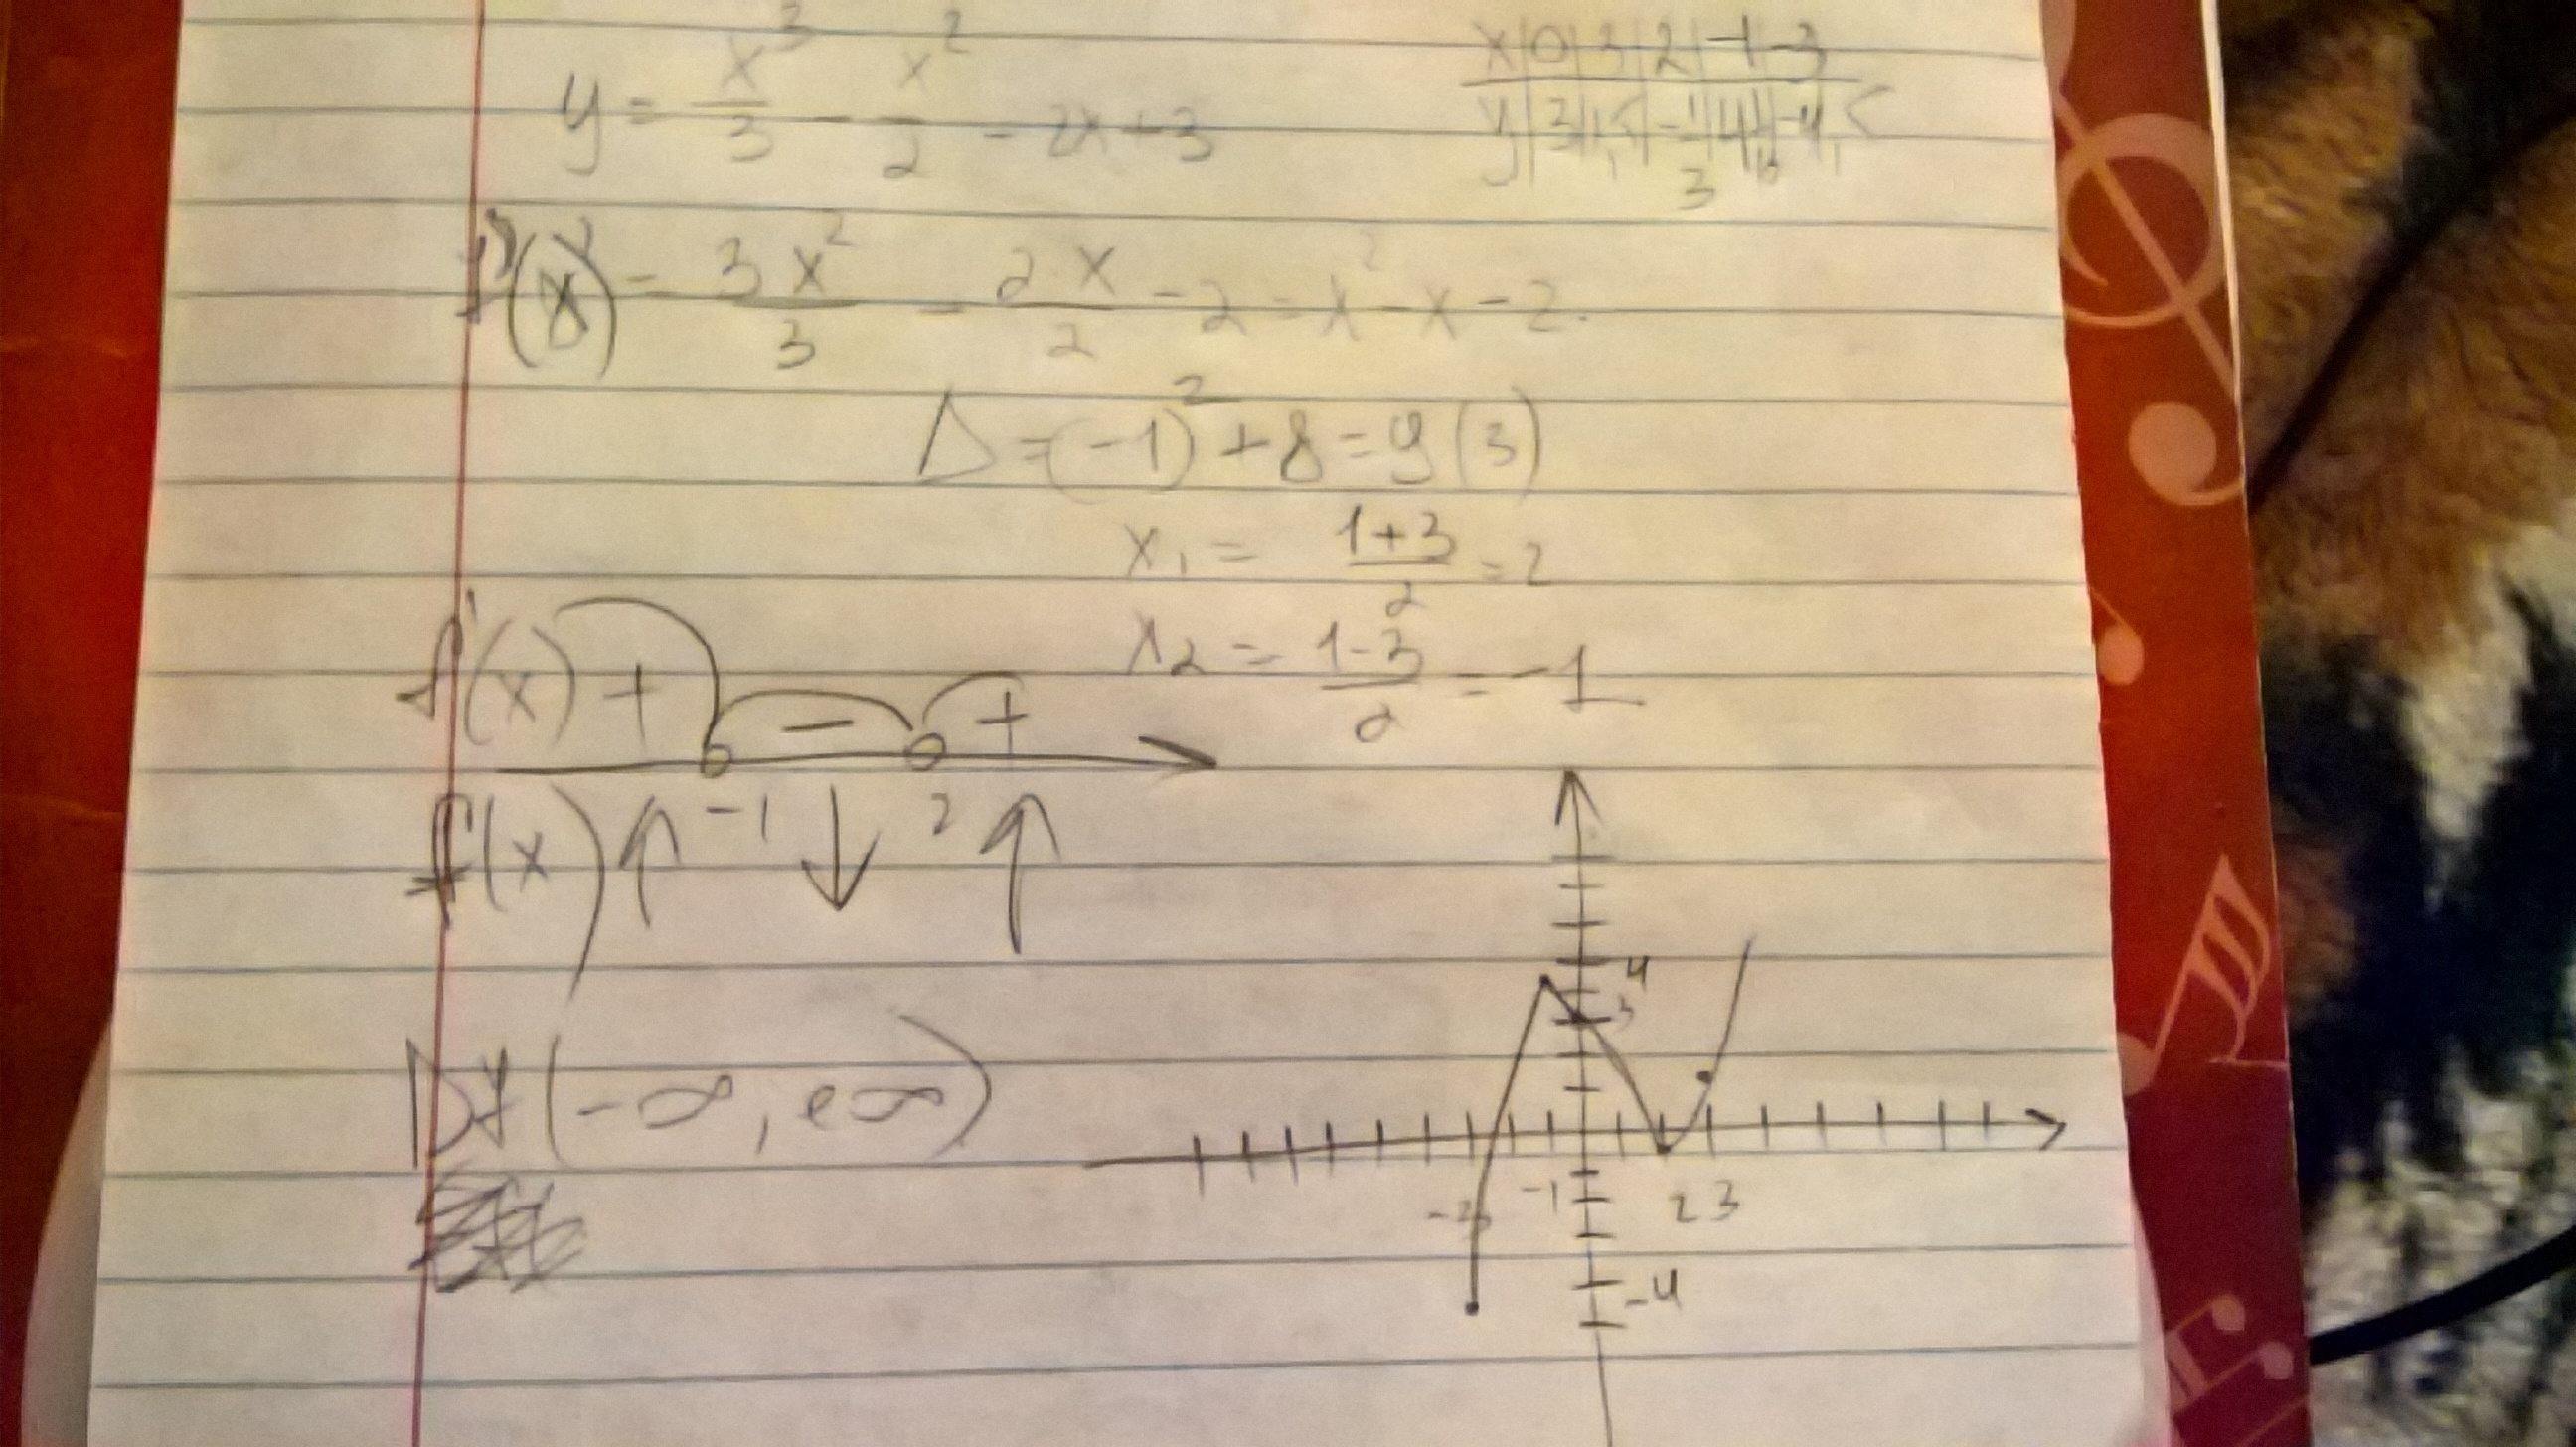 y = x³/3 - x²/2 - 2x + 3
x | 0 | 3 | 2 | -1 | -3
y | 3 | 1,5 | -1/3 | 4 1/6 | -4,5
f'(x) = 3x²/3 - 2x/2 - 2 = x² - x - 2.
Δ = (-1)² + 8 = 9 (3)
x₁ = 1+3/2 = 2
x₂ = 1-3/2 = -1
f'(x) + - +
-1 2
f(x) ↑ ↓ ↑
Df (-∞, +∞)
4
3
-1 2 3
-4